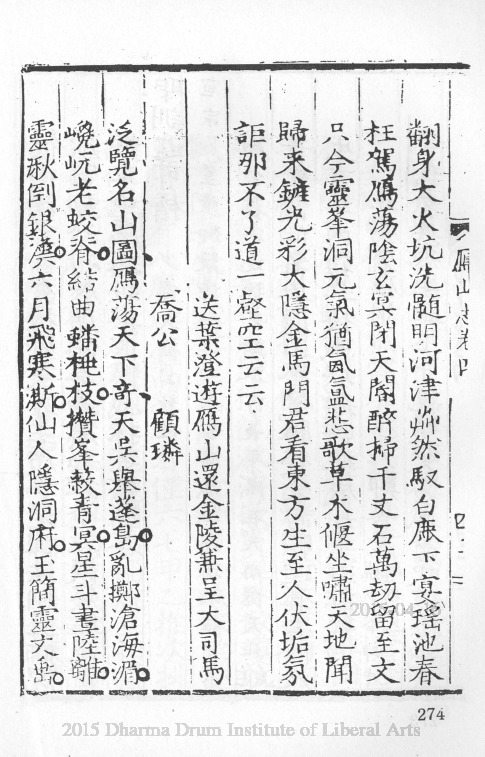 鴈山志卷四
翻身大火坑洗髓明河津然馭白鹿下窺瑤池春
枉駕鴈蕩陰玄冥閉天閽醉掃千丈石萬劫留至文
只今靈峯洞元氣猶氤氳悲歌草木偃坐嘯天地聞
歸来鏟光彩大隱金馬門君看東方生至人伏垢氛
詎那不了道一壑空云云
送葉澄遊鴈山還金陵兼呈大司馬
喬公 顧璘
泛覽名山圖鴈蕩天下奇天吳舉蓬島亂擲滄海湄
巉岏老蛟脊結曲蟠枝攢峯青冥星斗晝陸離
靈湫到銀漢六月飛寒澌仙人隱洞府玉簡靈文
274
2015 Dharma Drum Institute of Liberal Arts